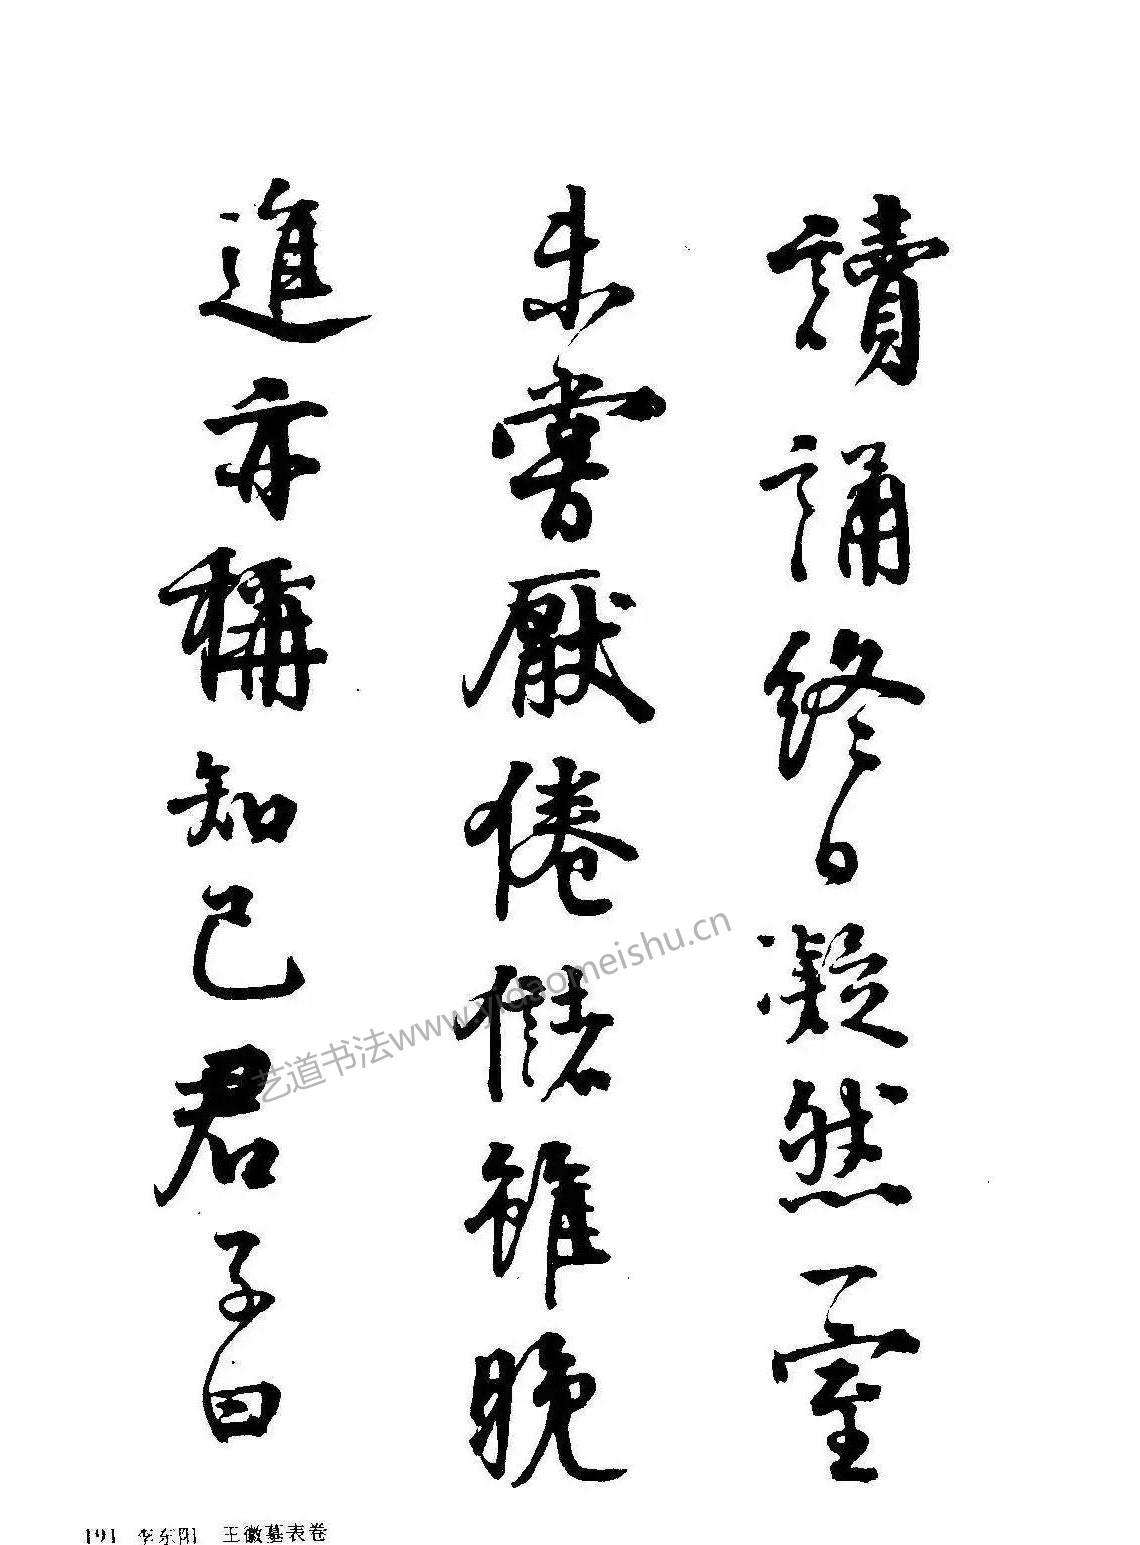 讀誦終日凝然一室
未嘗厭倦儲雖晚
進亦稱知己君子曰
艺道书法www.yidaomeishu.cn
191 李东阳 王徽墓表卷